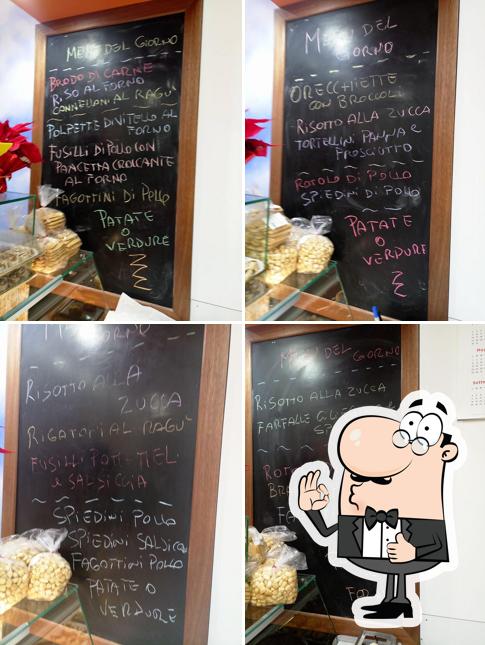 MENU DEL GIORNO
BRODO DI CARNE
RISO AL FORNO
CANNELLONI AL RAGU'
POLPETTE DI VITELLO AL
FORNO
FUSILLI DI POLLO CON
PANCETTA CROCCANTE
AL FORNO
FAGOTTINI DI POLLO
PATATE
O
VERDURE
MENU DEL
GIORNO
ORECCHIETTE
CON BROCCOLI
RISOTTO ALLA ZUCCA
TORTELLINI PANNA E
PROSCIUTTO
ROTOLO DI POLLO
SPIEDINI DI POLLO
PATATE
O
VERDURE
GIORNO
RISOTTO ALLA
ZUCCA
RIGATONI AL RAGU'
FUSILLI
E SALSICCIA
SPIEDINI POLLO
SPIEDINI SALSICCIA
FAGOTTINI POLLO
PATATE O
VERDURE
MENU DEL GIORNO
RISOTTO ALLA ZUCCA
FARFALLE